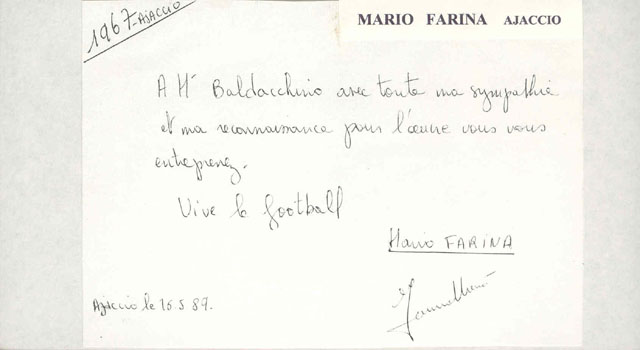 1967-AJACCIO
MARIO FARINA AJACCIO
A Mr Baldacchino avec toute ma sympathie
et ma reconnaissance pour l'œuvre vous vous
entreprenez.
Vive le football
Mario FARINA
Ajaccio le 16.5.89.